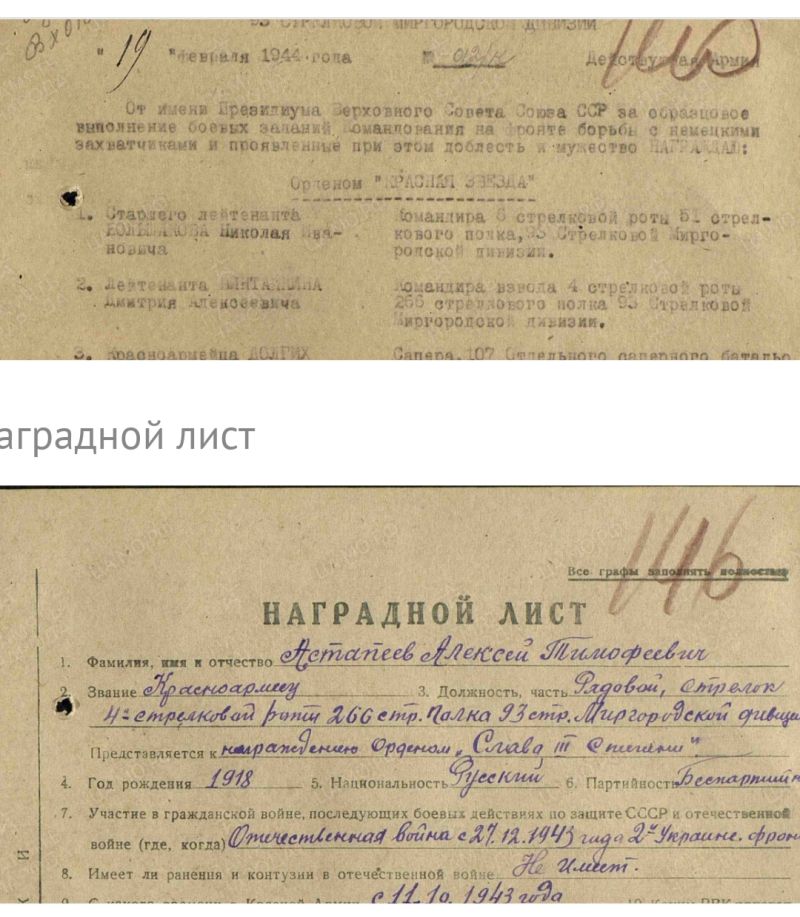 93 СТРЕЛКОВОЙ МИРГОРОДСКОЙ ДИВИЗИИ
"19" февраля 1944 года № 02/н Действующая Армия
От имени Президиума Верховного Совета Союза ССР за образцовое
выполнение боевых заданий командования на фронте борьбы с немецкими
захватчиками и проявленные при этом доблесть и мужество НАГРАЖДАЮ:
Орденом "КРАСНАЯ ЗВЕЗДА"
1. Старшего лейтенанта Командира 6 стрелковой роты 51 стрел-
Николая Ива- кового полка, 93 Стрелковой Мирго-
новича родской дивизии.
2. Лейтенанта Командира взвода 4 стрелковой роты
Дмитрия Алексеевича 266 стрелкового полка 93 Стрелковой
Миргородской дивизии.
3. Красноармейца ДОЛГИХ Сапера, 107 Отдельного саперного баталь
аградной лист
146
Все графы заполнять полностью
НАГРАДНОЙ ЛИСТ
1. Фамилия, имя и отчество Астапеев Алексей Тимофеевич
2. Звание Красноармеец 3. Должность, часть Рядовой, стрелок
4й стрелковой роты 266 стр. полка 93 стр. Миргородской дивизи
Представляется к награждению Орденом „Слава III степени"
4. Год рождения 1918 5. Национальность Русский 6. Партийность Беспартийн
7. Участие в гражданской войне, последующих боевых действиях по защите СССР и отечественной
войне (где, когда) Отечественная война с 27.12.1943 года 2й Украинс. фрон
8. Имеет ли ранения и контузии в отечественной войне Не имеет.
с 11.10.1943 года